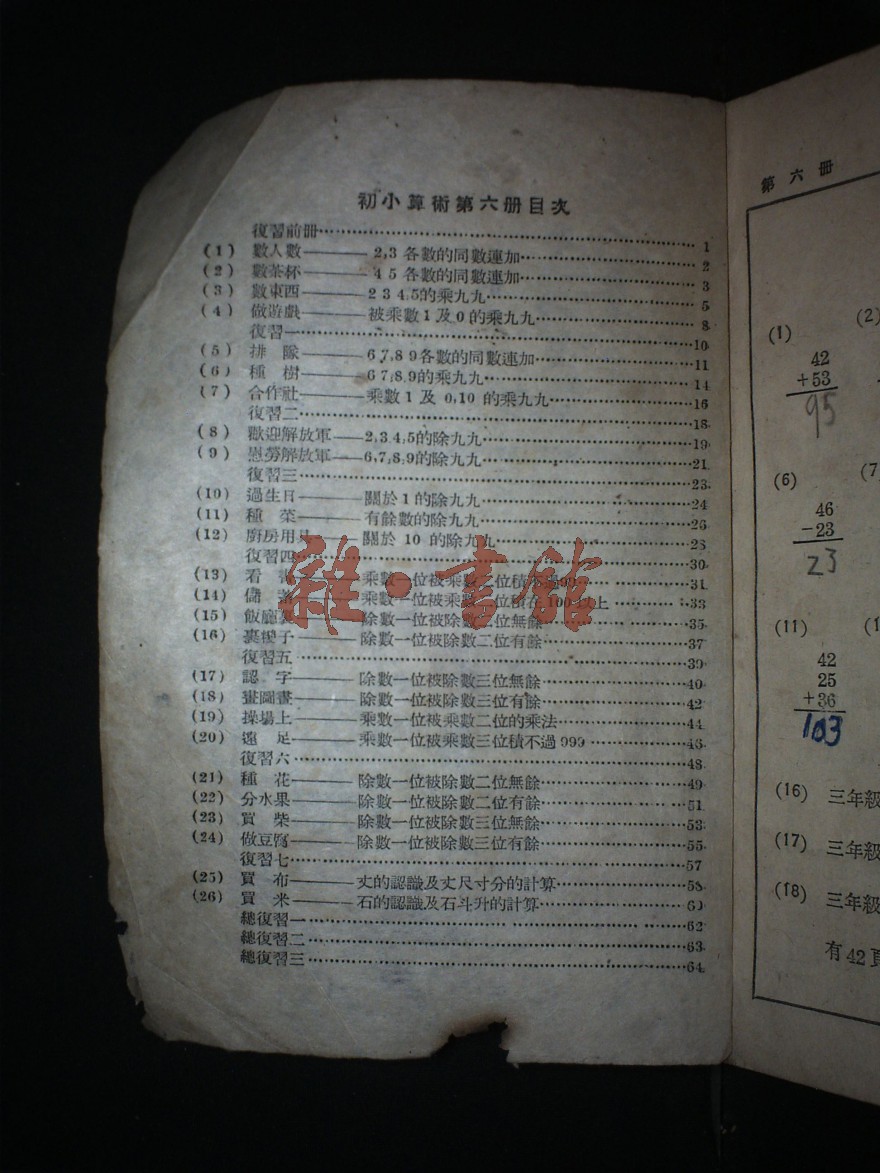 初小算術第六册目次
復習前册……1
(1) 數人數——2,3 各數的同數連加……2
(2) 數茶杯——4 5 各數的同數連加……3
(3) 數東西——2 3 4,5的乘九九……5
(4) 做遊戲——被乘數1及0的乘九九……8
復習一……10
(5) 排隊——6,7,8 9各數的同數連加……11
(6) 種樹——6 7,8,9的乘九九……14
(7) 合作社——乘數1及0,10 的乘九九……16
復習二……18
(8) 歡迎解放軍——2,3,4,5的除九九……19
(9) 慰勞解放軍——6,7,8,9的除九九……21
復習三……23
(10) 過生日——關於1的除九九……24
(11) 種菜——有餘數的除九九……26
(12) 廚房用具——關於 10 的除九九……28
復習四……30
(13) 看——乘數一位被乘數二位積不過99……31
(14) 儲——乘數一位被乘數二位積在100以上……33
(15) 飯廳裏——除數一位被除數二位無餘……35
(16) 裹糉子——除數一位被除數二位有餘……37
復習五……39
(17) 認字——除數一位被除數三位無餘……40
(18) 畫圖畫——除數一位被除數三位有餘……42
(19) 操場上——乘數一位被乘數二位的乘法……44
(20) 遠足——乘數一位被乘數三位積不過999……46
復習六……48
(21) 種花——除數一位被除數二位無餘……49
(22) 分水果——除數一位被除數二位有餘……51
(23) 買柴——除數一位被除數三位無餘……53
(24) 做豆腐——除數一位被除數三位有餘……55
復習七……57
(25) 買布——丈的認識及丈尺寸分的計算……58
(26) 買米——石的認識及石斗升的計算……60
總復習一……62
總復習二……63
總復習三……64
雜·書館
第六册
(1)
(2)
42
+53
95
(6)
(7
46
−23
23
(11)
(1
42
25
+36
103
(16) 三年級
(17) 三年級
(18) 三年級
有42頁